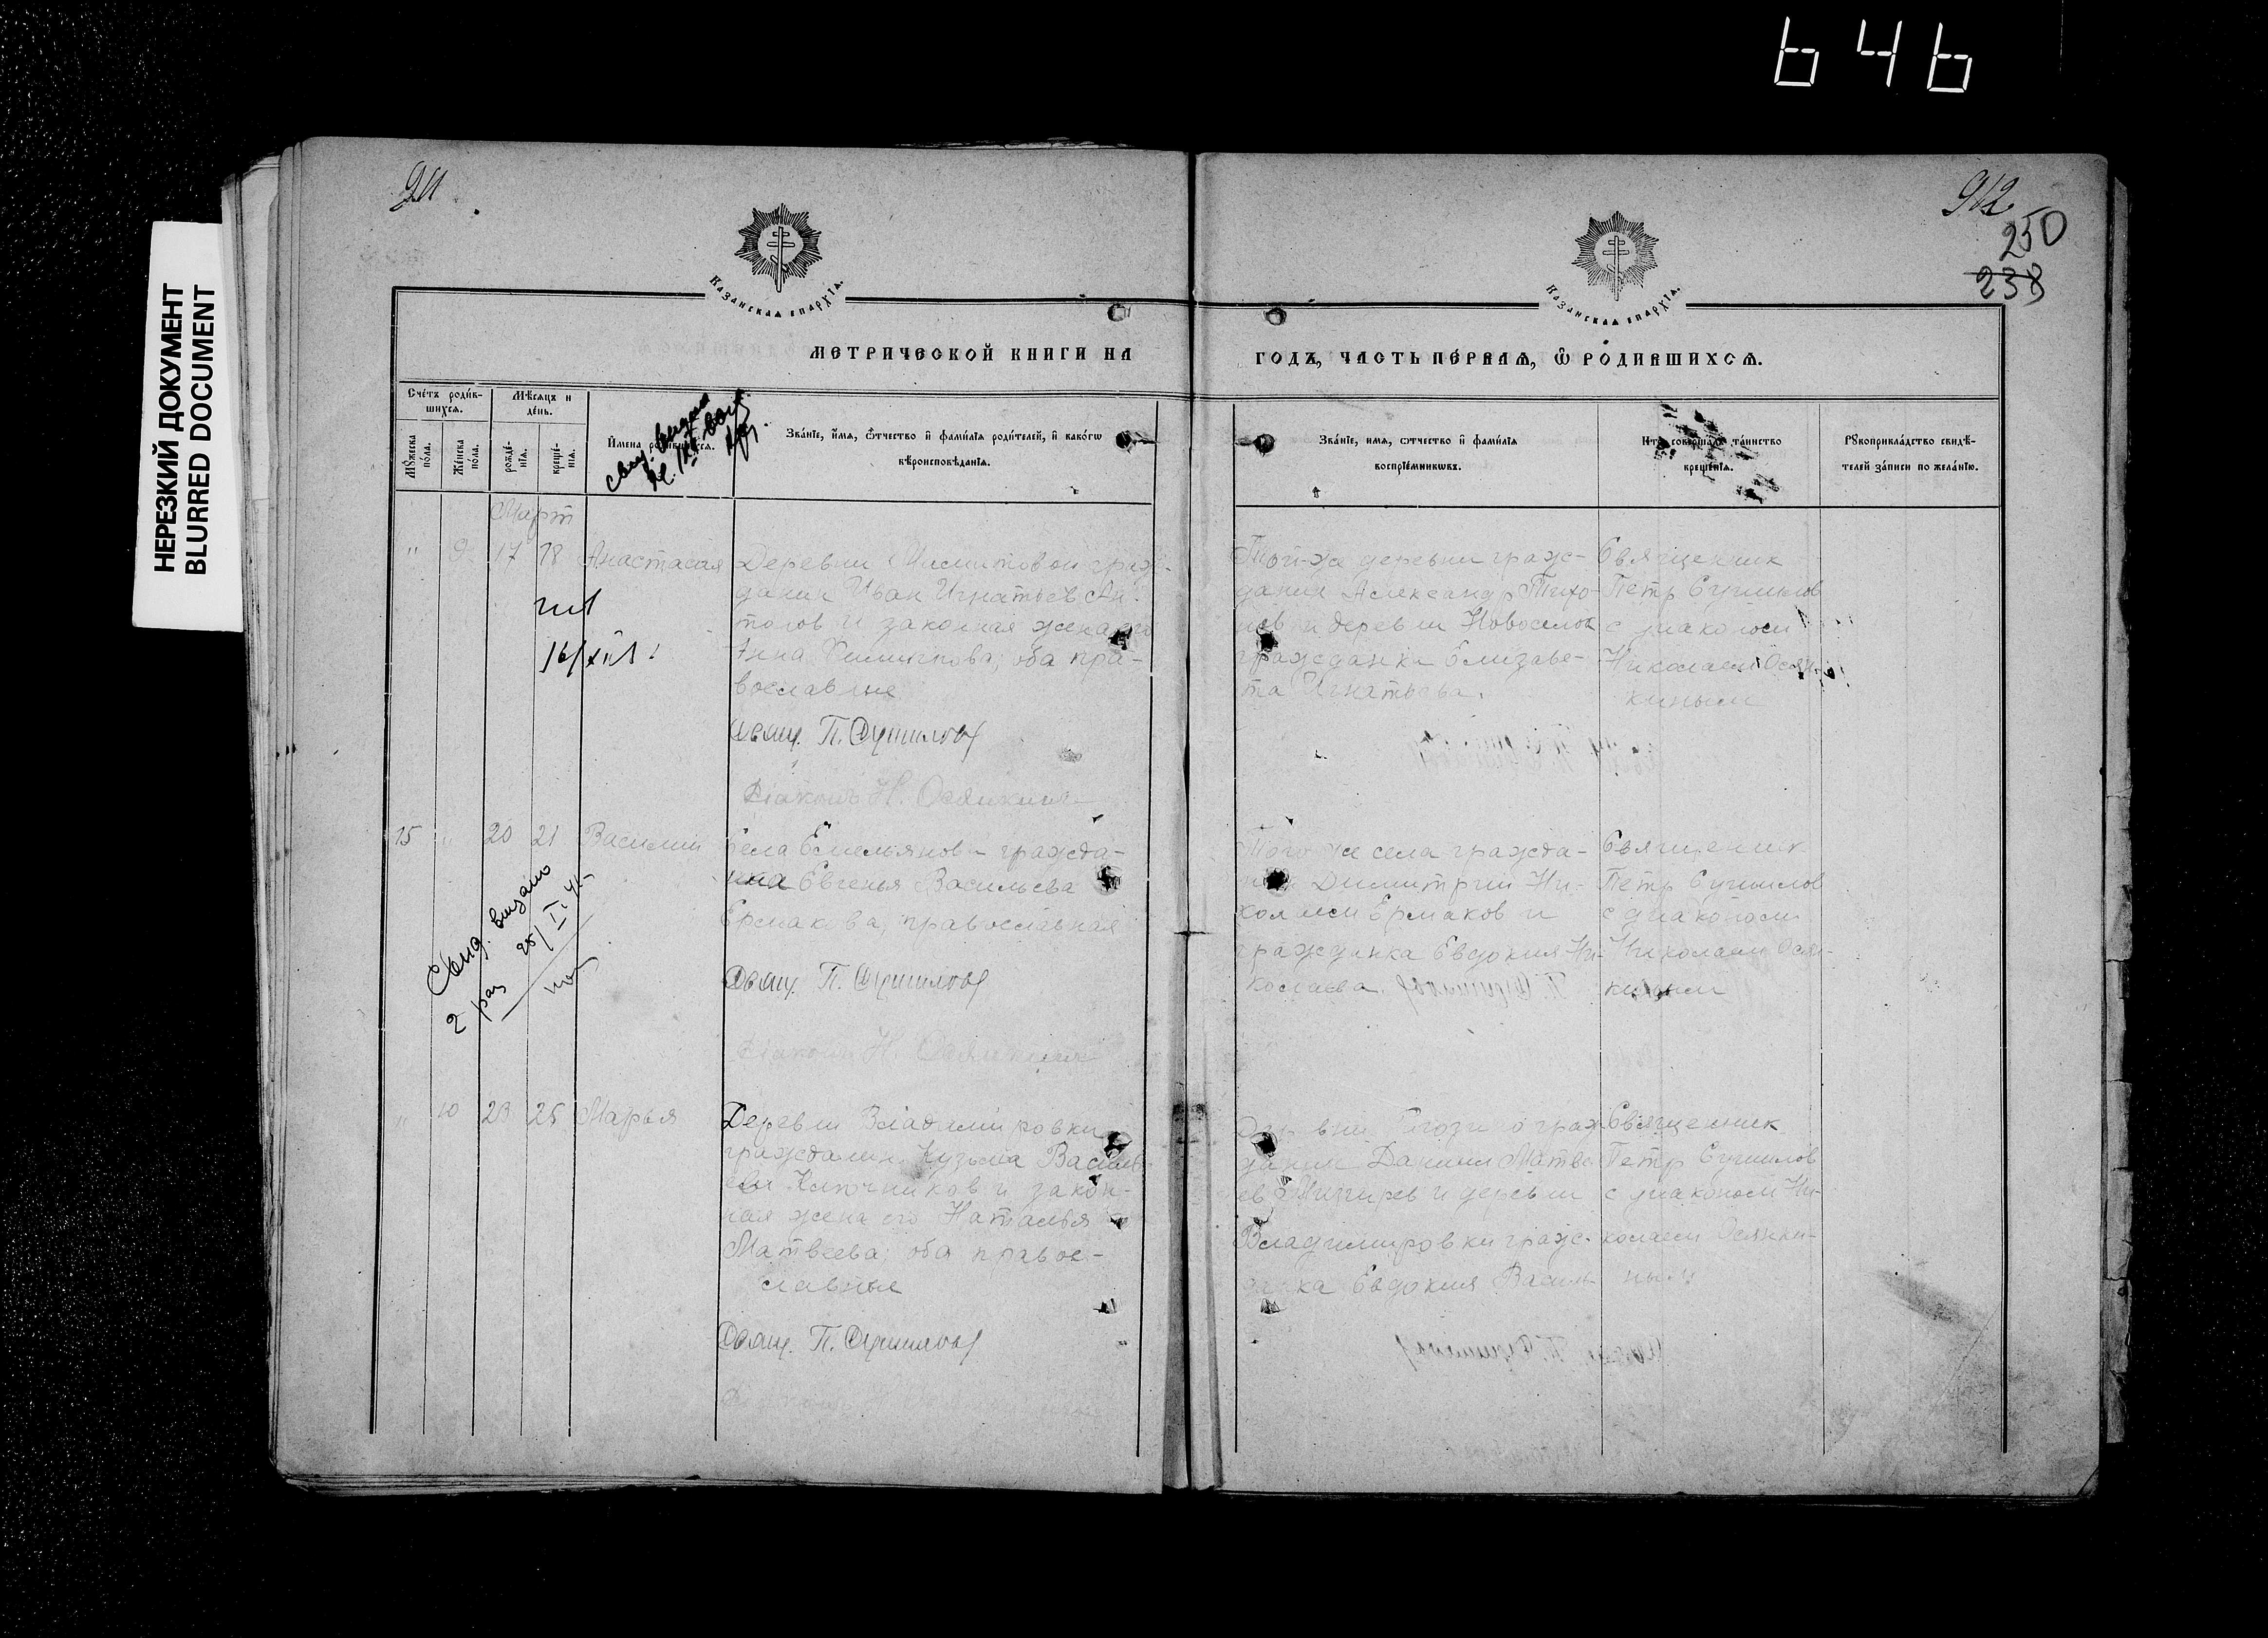 646
НЕРЕЗКИЙ ДОКУМЕНТ
BLURRED DOCUMENT
911
912
250
238
Казанская епархія.
Казанская епархія.
МЕТРИЧЕСКОЙ КНИГИ НА
ГОДЪ, ЧАСТЬ ПЕРВАЯ, Ѽ РОДИВШИХСѦ.
Счетъ родив-
шихсѧ.
Мѣсѧцъ и
день.
Мꙋжеска
пола.
Женска
пола.
рожде-
нїѧ.
креще-
нїѧ.
Имена родившихсѧ.
Званїе, имѧ, ѿчество и фамилїѧ родителей, и какогѡ
вѣроисповѣданїѧ.
Званїе, имѧ, ѿчество и фамилїѧ
воспрїемникѡвъ.
Кто совершалъ таинство
крещенїѧ.
Рꙋкоприкладство свидѣ-
телей записи по желанїю.
Март
" 9 17 18 Анастасия
Деревни граж-
данин Иван Игнатьев Ан-
тонов и законная жена его
Анна оба пра-
вославные
Свящ. П. Сушилов
Діаконъ Н. Осянкинъ
Той-же деревни граж-
данин Александр Тихо-
нов и деревни Новоселок
гражданка Елизаве-
та Игнатьева.
Священник
Петр Сушилов
с диаконом
Николаем Осян-
киным
15 " 20 21 Василий
Свид. выдано
2 раз 25/I
Села Емельянова гражда-
нка Евгенья Васильева
Ермакова, православная
Свящ. П. Сушилов
Діаконъ Н. Осянкинъ
Того же села гражда-
нин Димитрий Ни-
колаев Ермаков и
гражданка Евдокия Ни-
колаева.
Священник
Петр Сушилов
с диаконом
Николаем Осян-
киным
" 10 23 25 Марья
Деревни Владимировки
гражданин Кузьма Василь-
ев Ключников и закон-
ная жена его Наталья
Матвеева, оба правос-
лавные
Свящ. П. Сушилов
Деревни граж-
данин Даниил Матве-
ев и деревни
Владимировки граж-
данка Евдокия Василь
Священник
Петр Сушилов
с диаконом Ни-
колаем Осянки-
ным